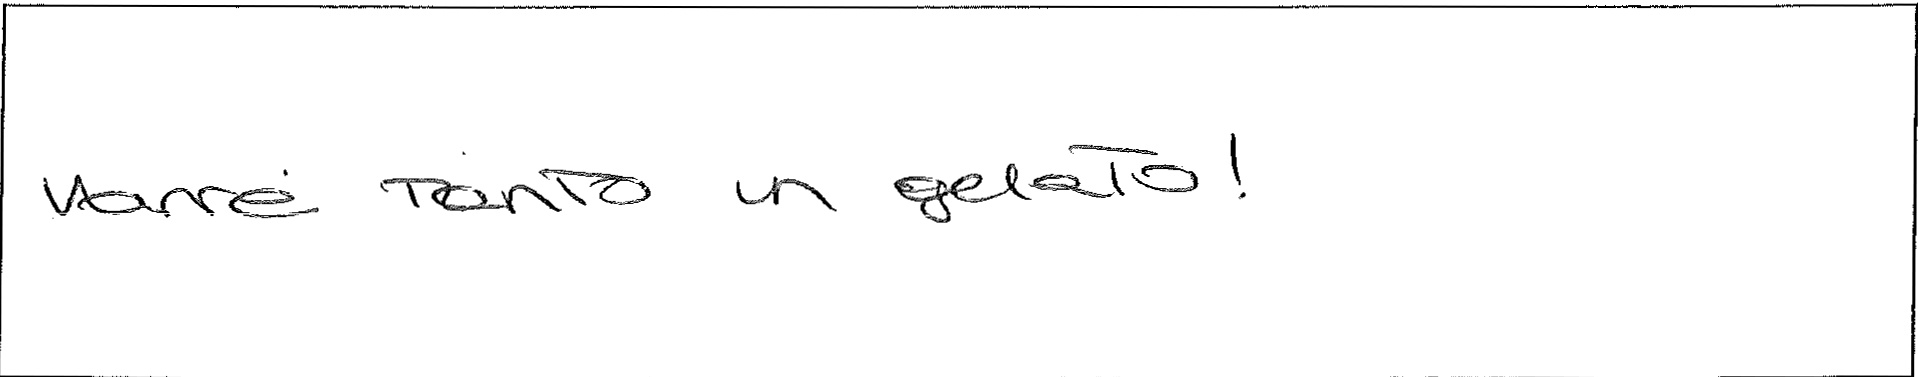 Varré tanto un gelato!